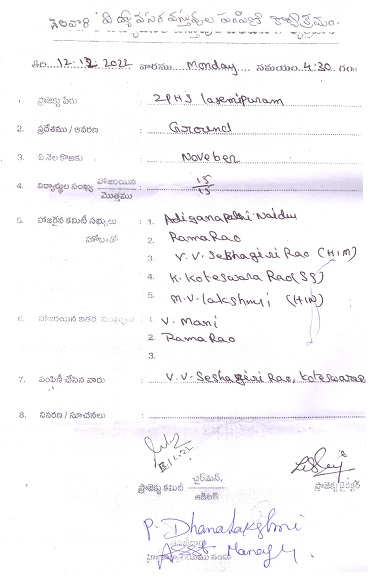 నెలవారి విద్యా వసర వస్తువుల పంపిణీ కార్యక్రమం.
తేది. 12.12.2022 వారము Monday సమయం. 4:30 గం
1. ప్రాజెక్టు పేరు : ZPHS laxmipuram
2. ప్రదేశము / ఆవరణ : Ground
3. ఏ నెల కొఱకు : Noveber
4. విద్యార్థుల సంఖ్య హాజరయిన / మొత్తము : 15/15
5. హాజరైన కమిటీ సభ్యులు హోదాతో : 1. Adiganapalni Naidu
2. Rama Rao
3. V.V. Seshagiri Rao (HIM)
4. K. Koteswara Rao (SS)
5. M.V. lakshmi (HIN)
6. హాజరయిన ఇతర : 1. V. Mani
2. Rama Rao
3.
7. పంపిణీ చేసిన వారు : V.V. Seshageiri Rao, Koteswarao
8. వివరణ / సూచనలు :
ప్రాజెక్టు కమిటీ చైర్మెన్, / ఆడిటర్
ప్రాజెక్టు డైరెక్టర్
P. Dhanalakshmi
Asst Manager.